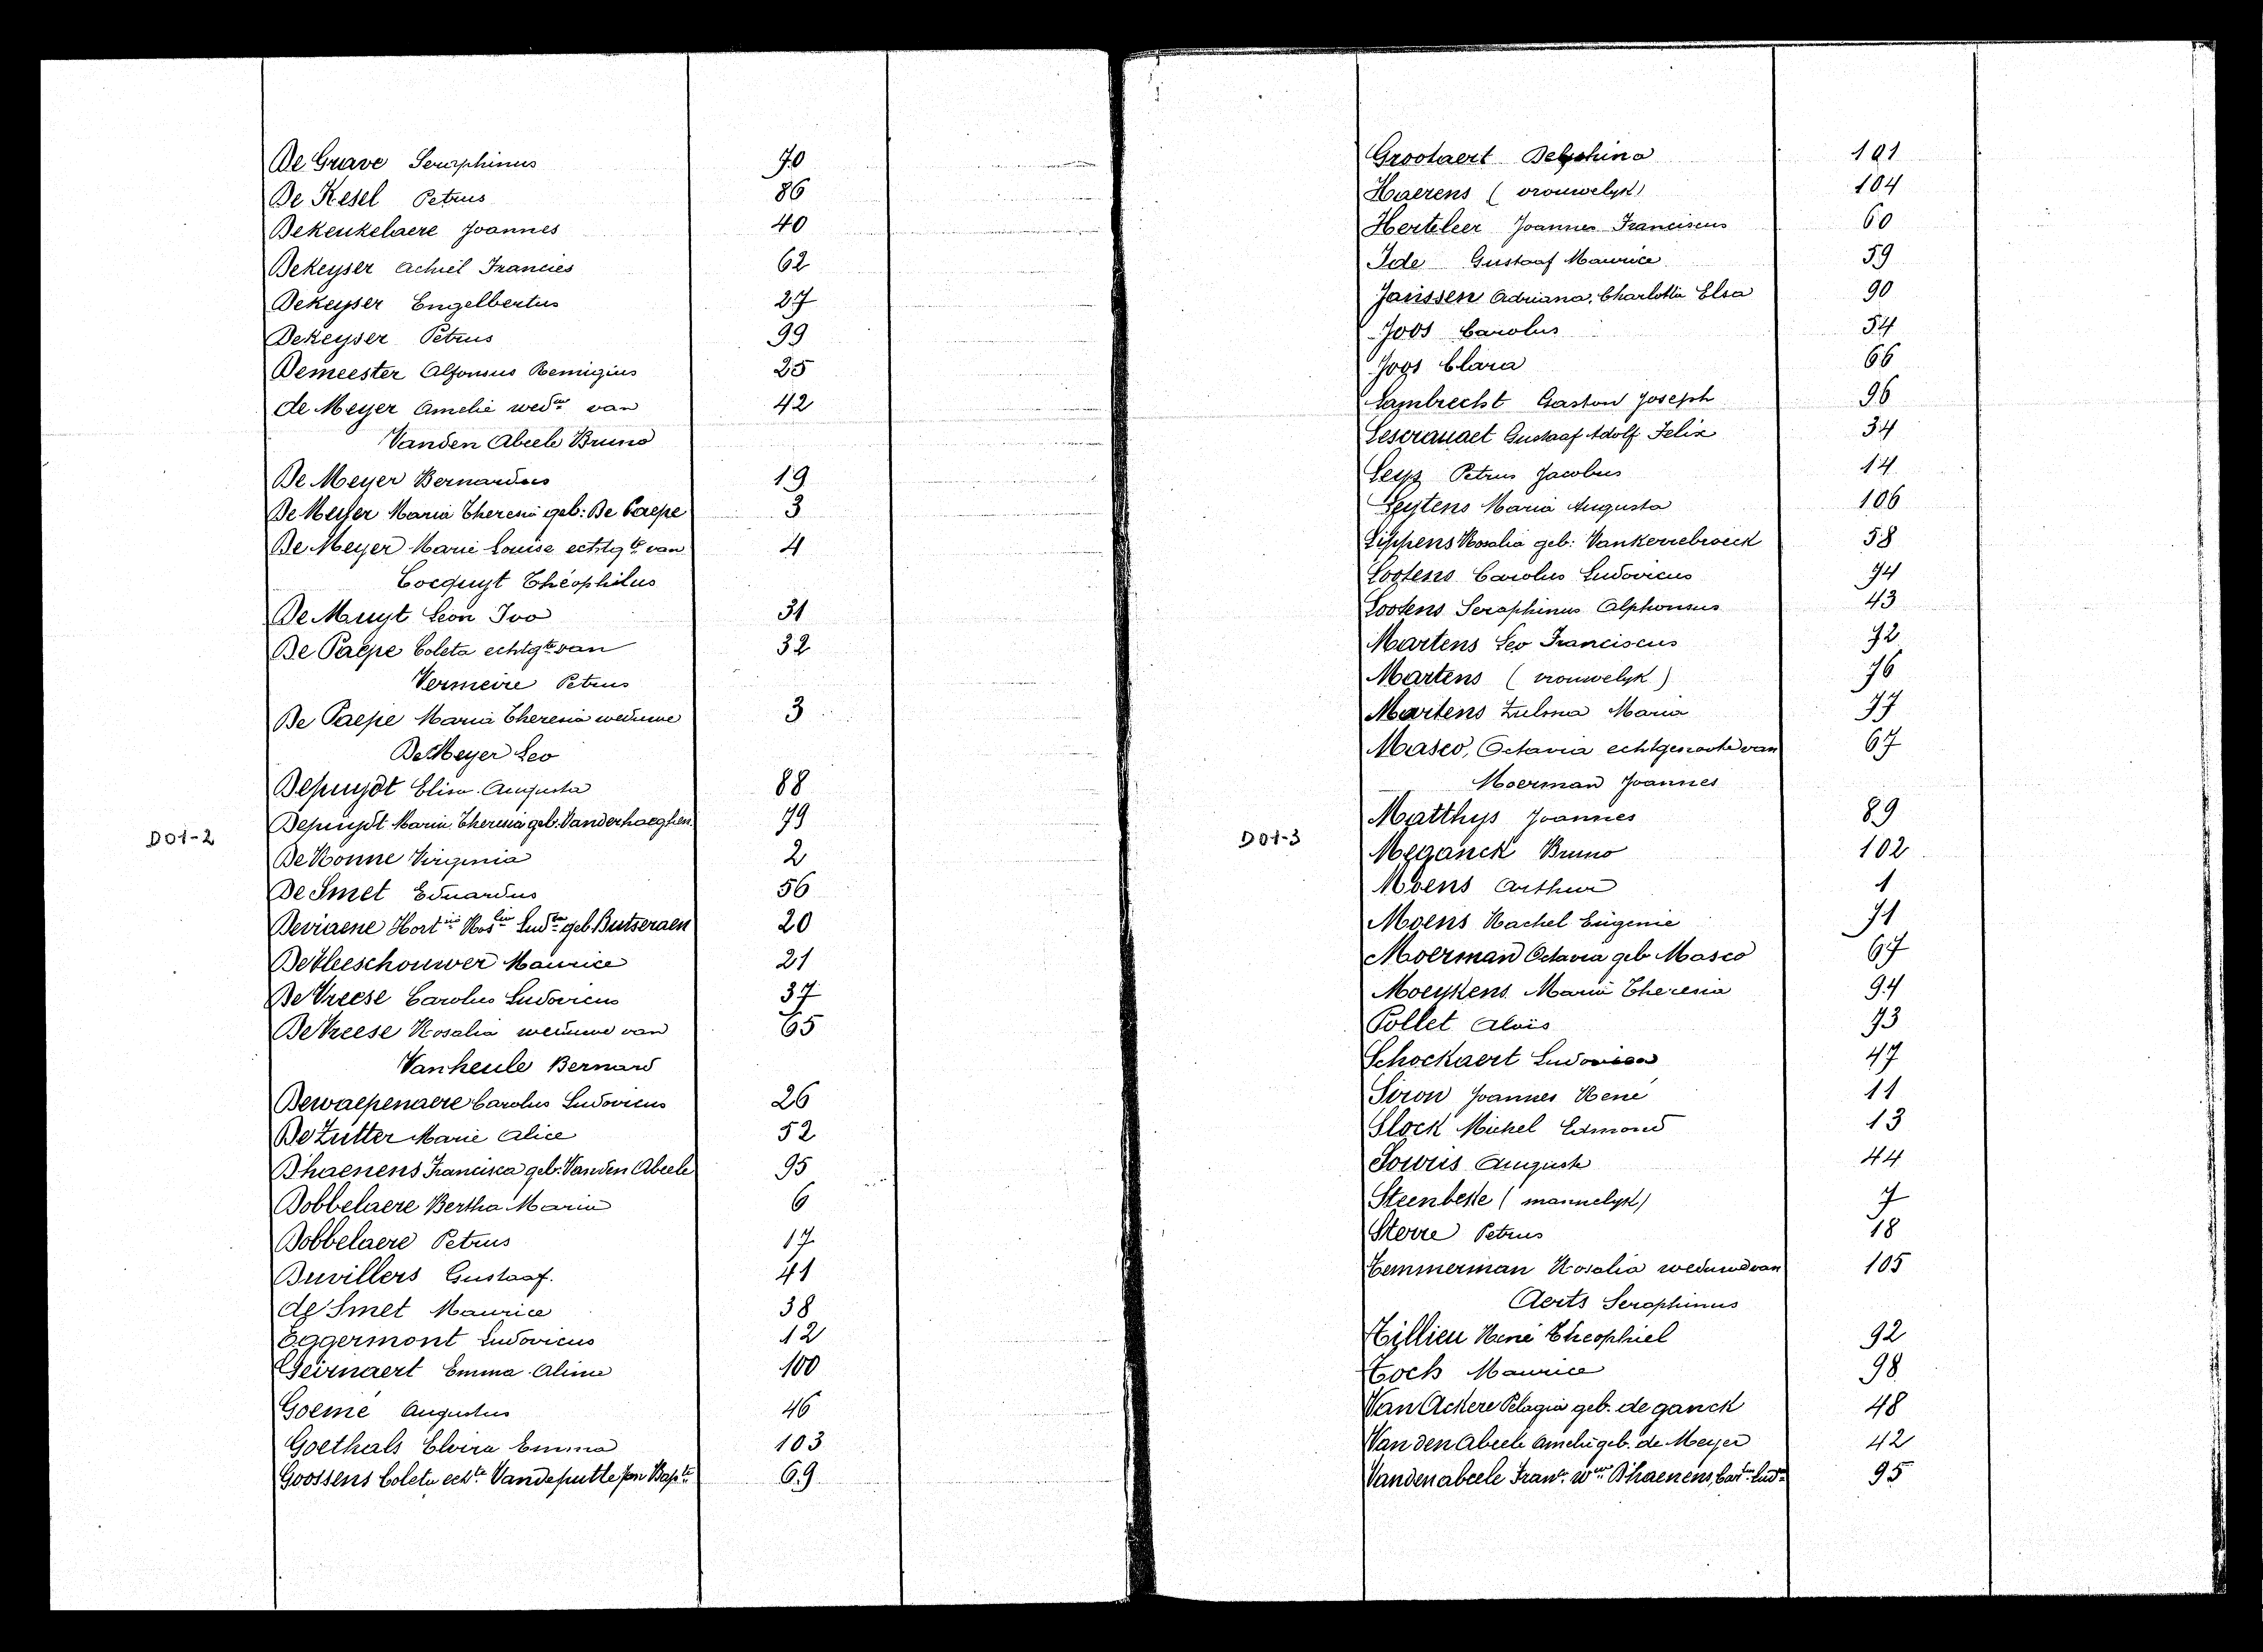 De Grave Seraphinus 70
De Kesel Petrus 86
Dekeukelaere Joannes 40
Dekeyser Achiel Francies 62
Dekeyser Engelbertus 27
Dekeyser Petrus 99
Demeester Alfonsus Remigius 25
de Meyer Amelie wedwe van 42
Vanden Abeele Bruno
De Meyer Bernardus 19
De Meyer Maria Theresia geb: De Paepe 3
De Meyer Marie Louise echtgte van 4
Cocquyt Théophilus
De Muyt Leon Ivo 31
De Paepe Coleta echtgte van 32
Vermeire Petrus
De Paepe Maria Theresia weduwe 3
De Meyer Leo
Depuydt Elisa Augusta 88
Depuydt Maria Theresia geb. Vanderhaeghen 79
D01-2
De Ronne Virginia 2
De Smet Eduardus 56
Deviaene Hort Ros Lud geb. Butseraen 20
De Vleeschouwer Maurice 21
De Vreese Carolus Ludovicus 37
De Vreese Rosalia weduwe van 65
Vanheule Bernard
Dewaepenaere Carolus Ludovicus 26
De Zutter Marie Alice 52
D'haenens Francisca geb. Vanden Abeele 95
Dobbelaere Bertha Maria 6
Dobbelaere Petrus 17
Duvillers Gustaaf. 41
de Smet Maurice 38
Eggermont Ludovicus 12
Geirnaert Emma Alina 100
Goemé Augustus 46
Goethals Elvira Emma 103
Goossens Coleta echte Vandeputte Jan Bapte 69
Grootaert Delphina 101
Haerens (vrouwelyk) 104
Herteleer Joannes Franciscus 60
Ide Gustaaf Maurice 59
Janssen Adriana, Charlotta Elsa 90
Joos Carolus 54
Joos Clara 66
Lambrecht Gaston Joseph 96
Lescrauaet Gustaaf Adolf Felix 34
Leys Petrus Jacobus 14
Leytens Maria Augusta 106
Lippens Rosalia geb: Vankerrebroeck 58
Lootens Carolus Ludovicus 74
Lootens Seraphinus Alphonsus 43
Martens Leo Franciscus 72
Martens (vrouwelyk) 76
Martens Zulma Maria 77
Masco, Octavia echtgenoote van 67
Moerman Joannes
Matthys Joannes 89
D01-3
Meganck Bruno 102
Moens Arthur 1
Moens Rachel Eugenie 71
Moerman Octavia geb Masco 67
Moeykens Maria Theresia 94
Pollet Aloïs 73
Schockaert Ludovica 47
Siron Joannes René 11
Slock Michel Edmond 13
Sowiis Auguste 44
Steenbeke (mannelyk) 7
Sterre Petrus 18
Temmerman Rosalia weduwe van 105
Aerts Seraphinus
Tillieu René Theophiel 92
Toch Maurice 98
Van Ackere Pelagia geb. de ganck 48
Van den Abeele Amelie geb. de Meyer 42
Vandenabeele Franca wwe D'haenens, Car Lud 95